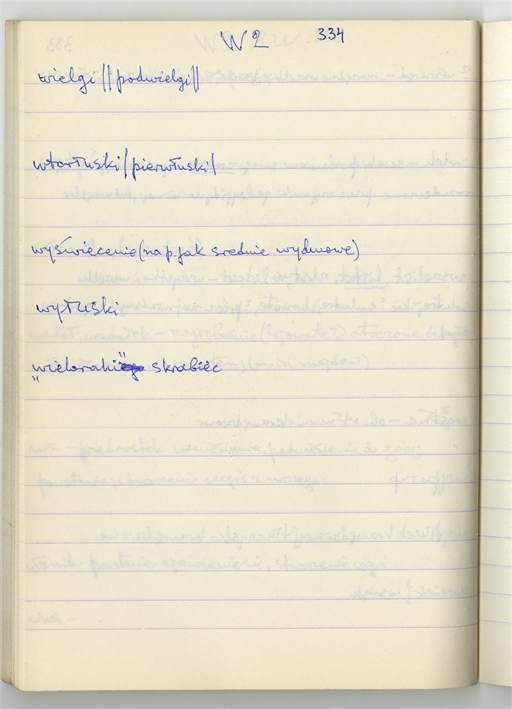 W 2 334
wielgi || podwielgi ||
wtorłuski / pierwłuski /
wyświecenie (nap. jak srednie wydmowe)
wyłuski
"wieloraki" skrabiec